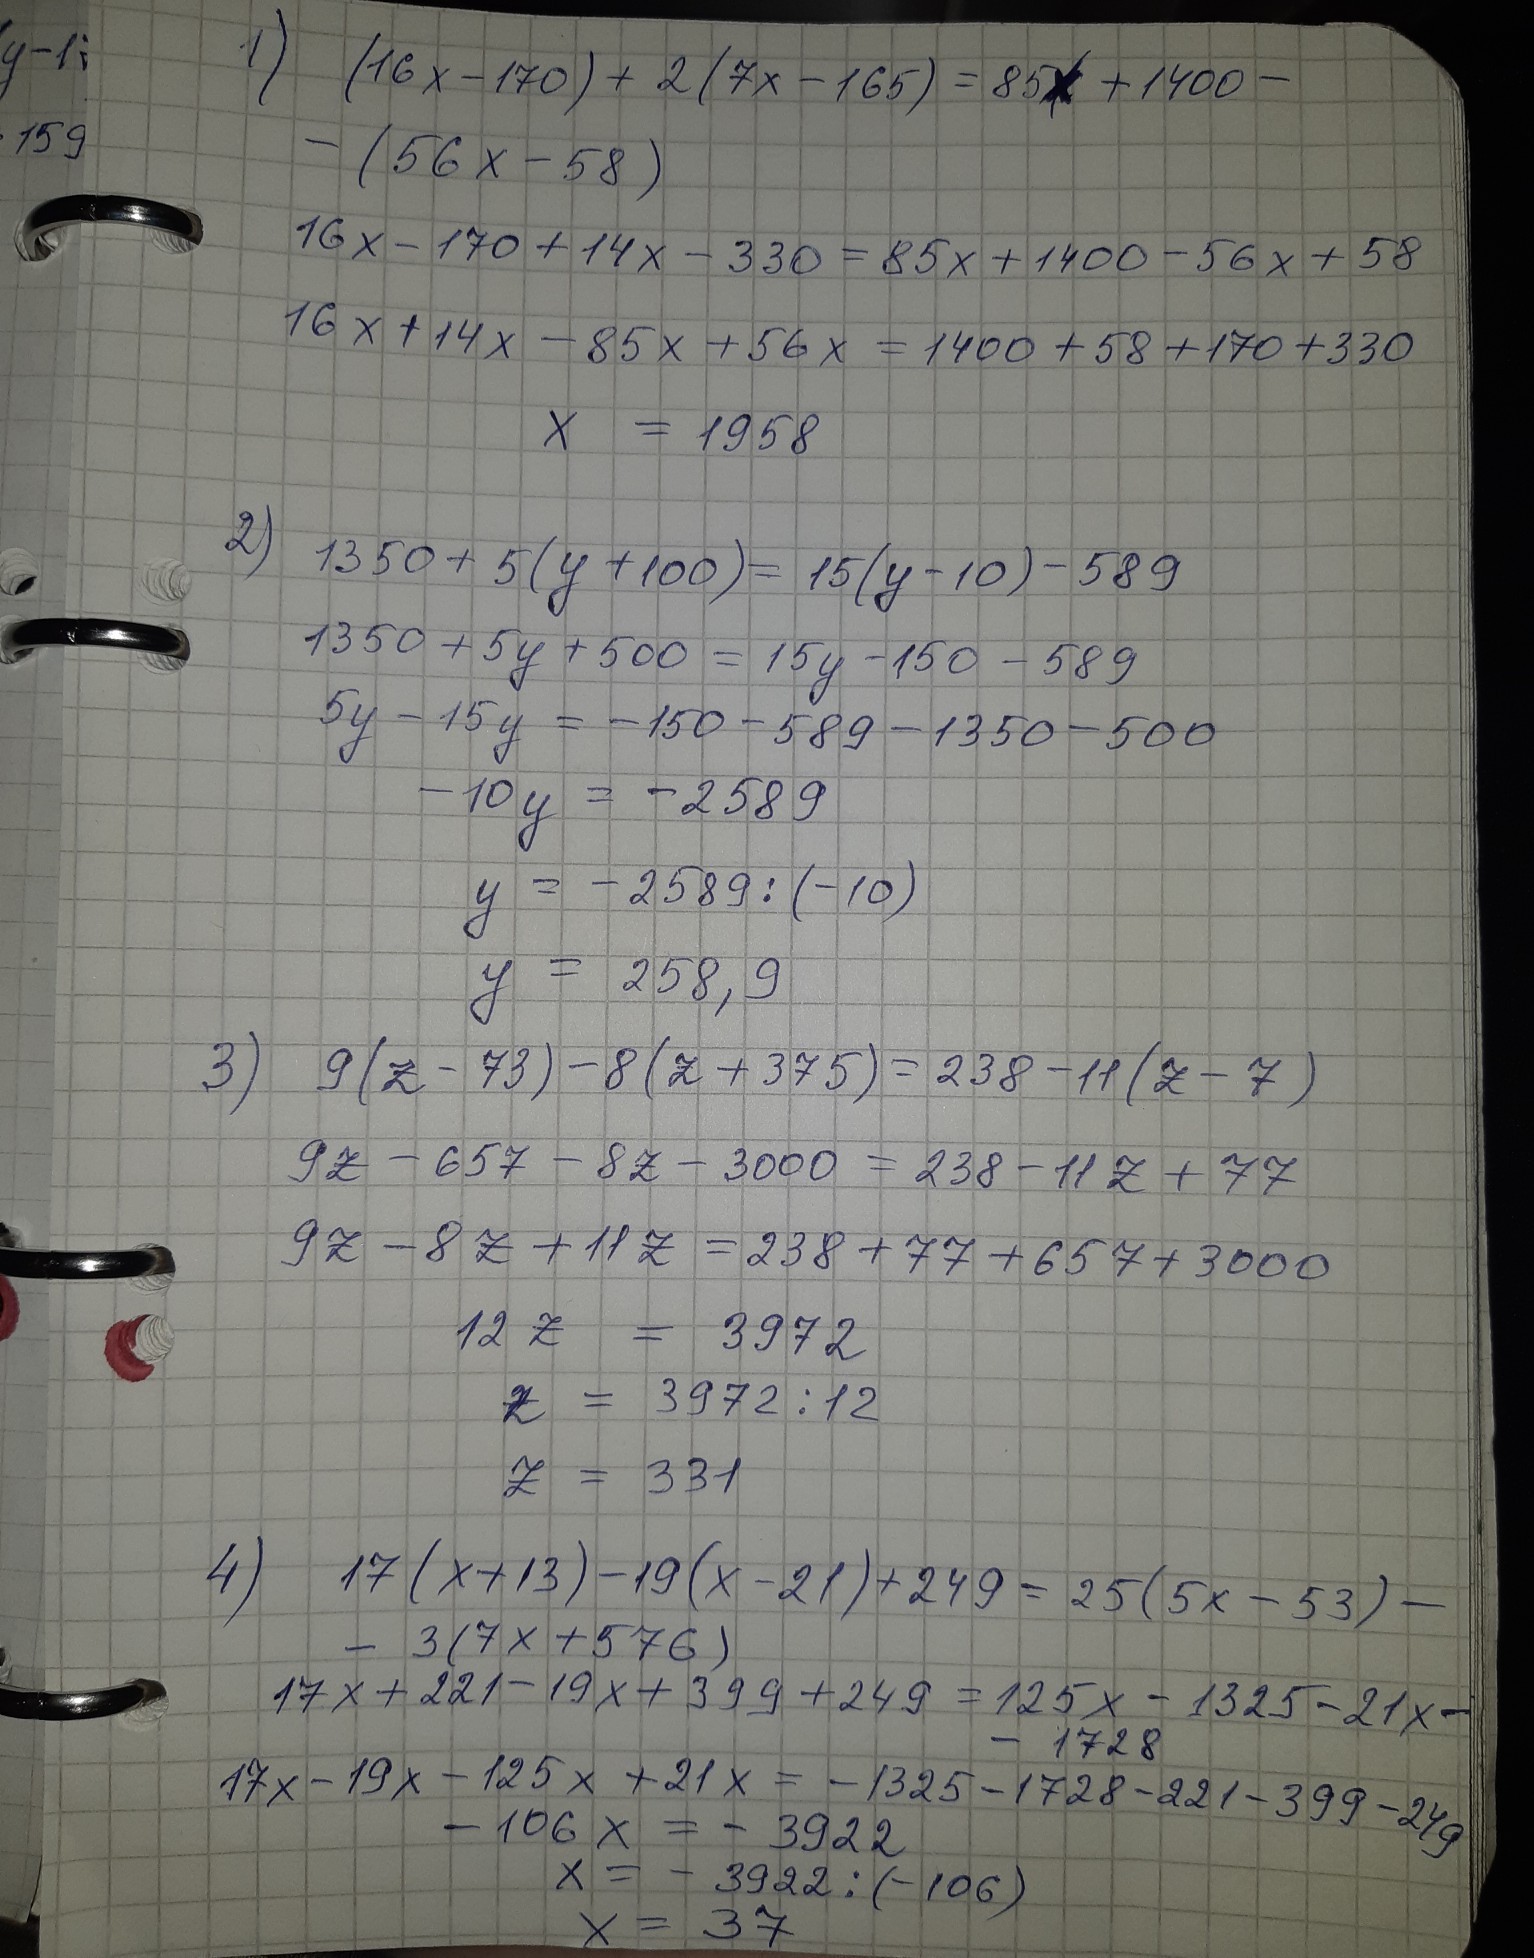 y-1
159
1) (16x-170)+2(7x-165)=85x+1400-
-(56x-58)
16x-170+14x-330=85x+1400-56x+58
16x+14x-85x+56x=1400+58+170+330
x = 1958
2) 1350+5(y+100)=15(y-10)-589
1350+5y+500=15y-150-589
5y-15y=-150-589-1350-500
-10y=-2589
y=-2589:(-10)
y=258,9
3) 9(z-73)-8(z+375)=238-11(z-7)
9z-657-8z-3000=238-11z+77
9z-8z+11z=238+77+657+3000
12z = 3972
z = 3972:12
z = 331
4) 17(x+13)-19(x-21)+249=25(5x-53)-
- 3(7x+576)
17x+221-19x+399+249=125x-1325-21x-
- 1728
17x-19x-125x+21x=-1325-1728-221-399-249
-106x=-3922
x=-3922:(-106)
x=37